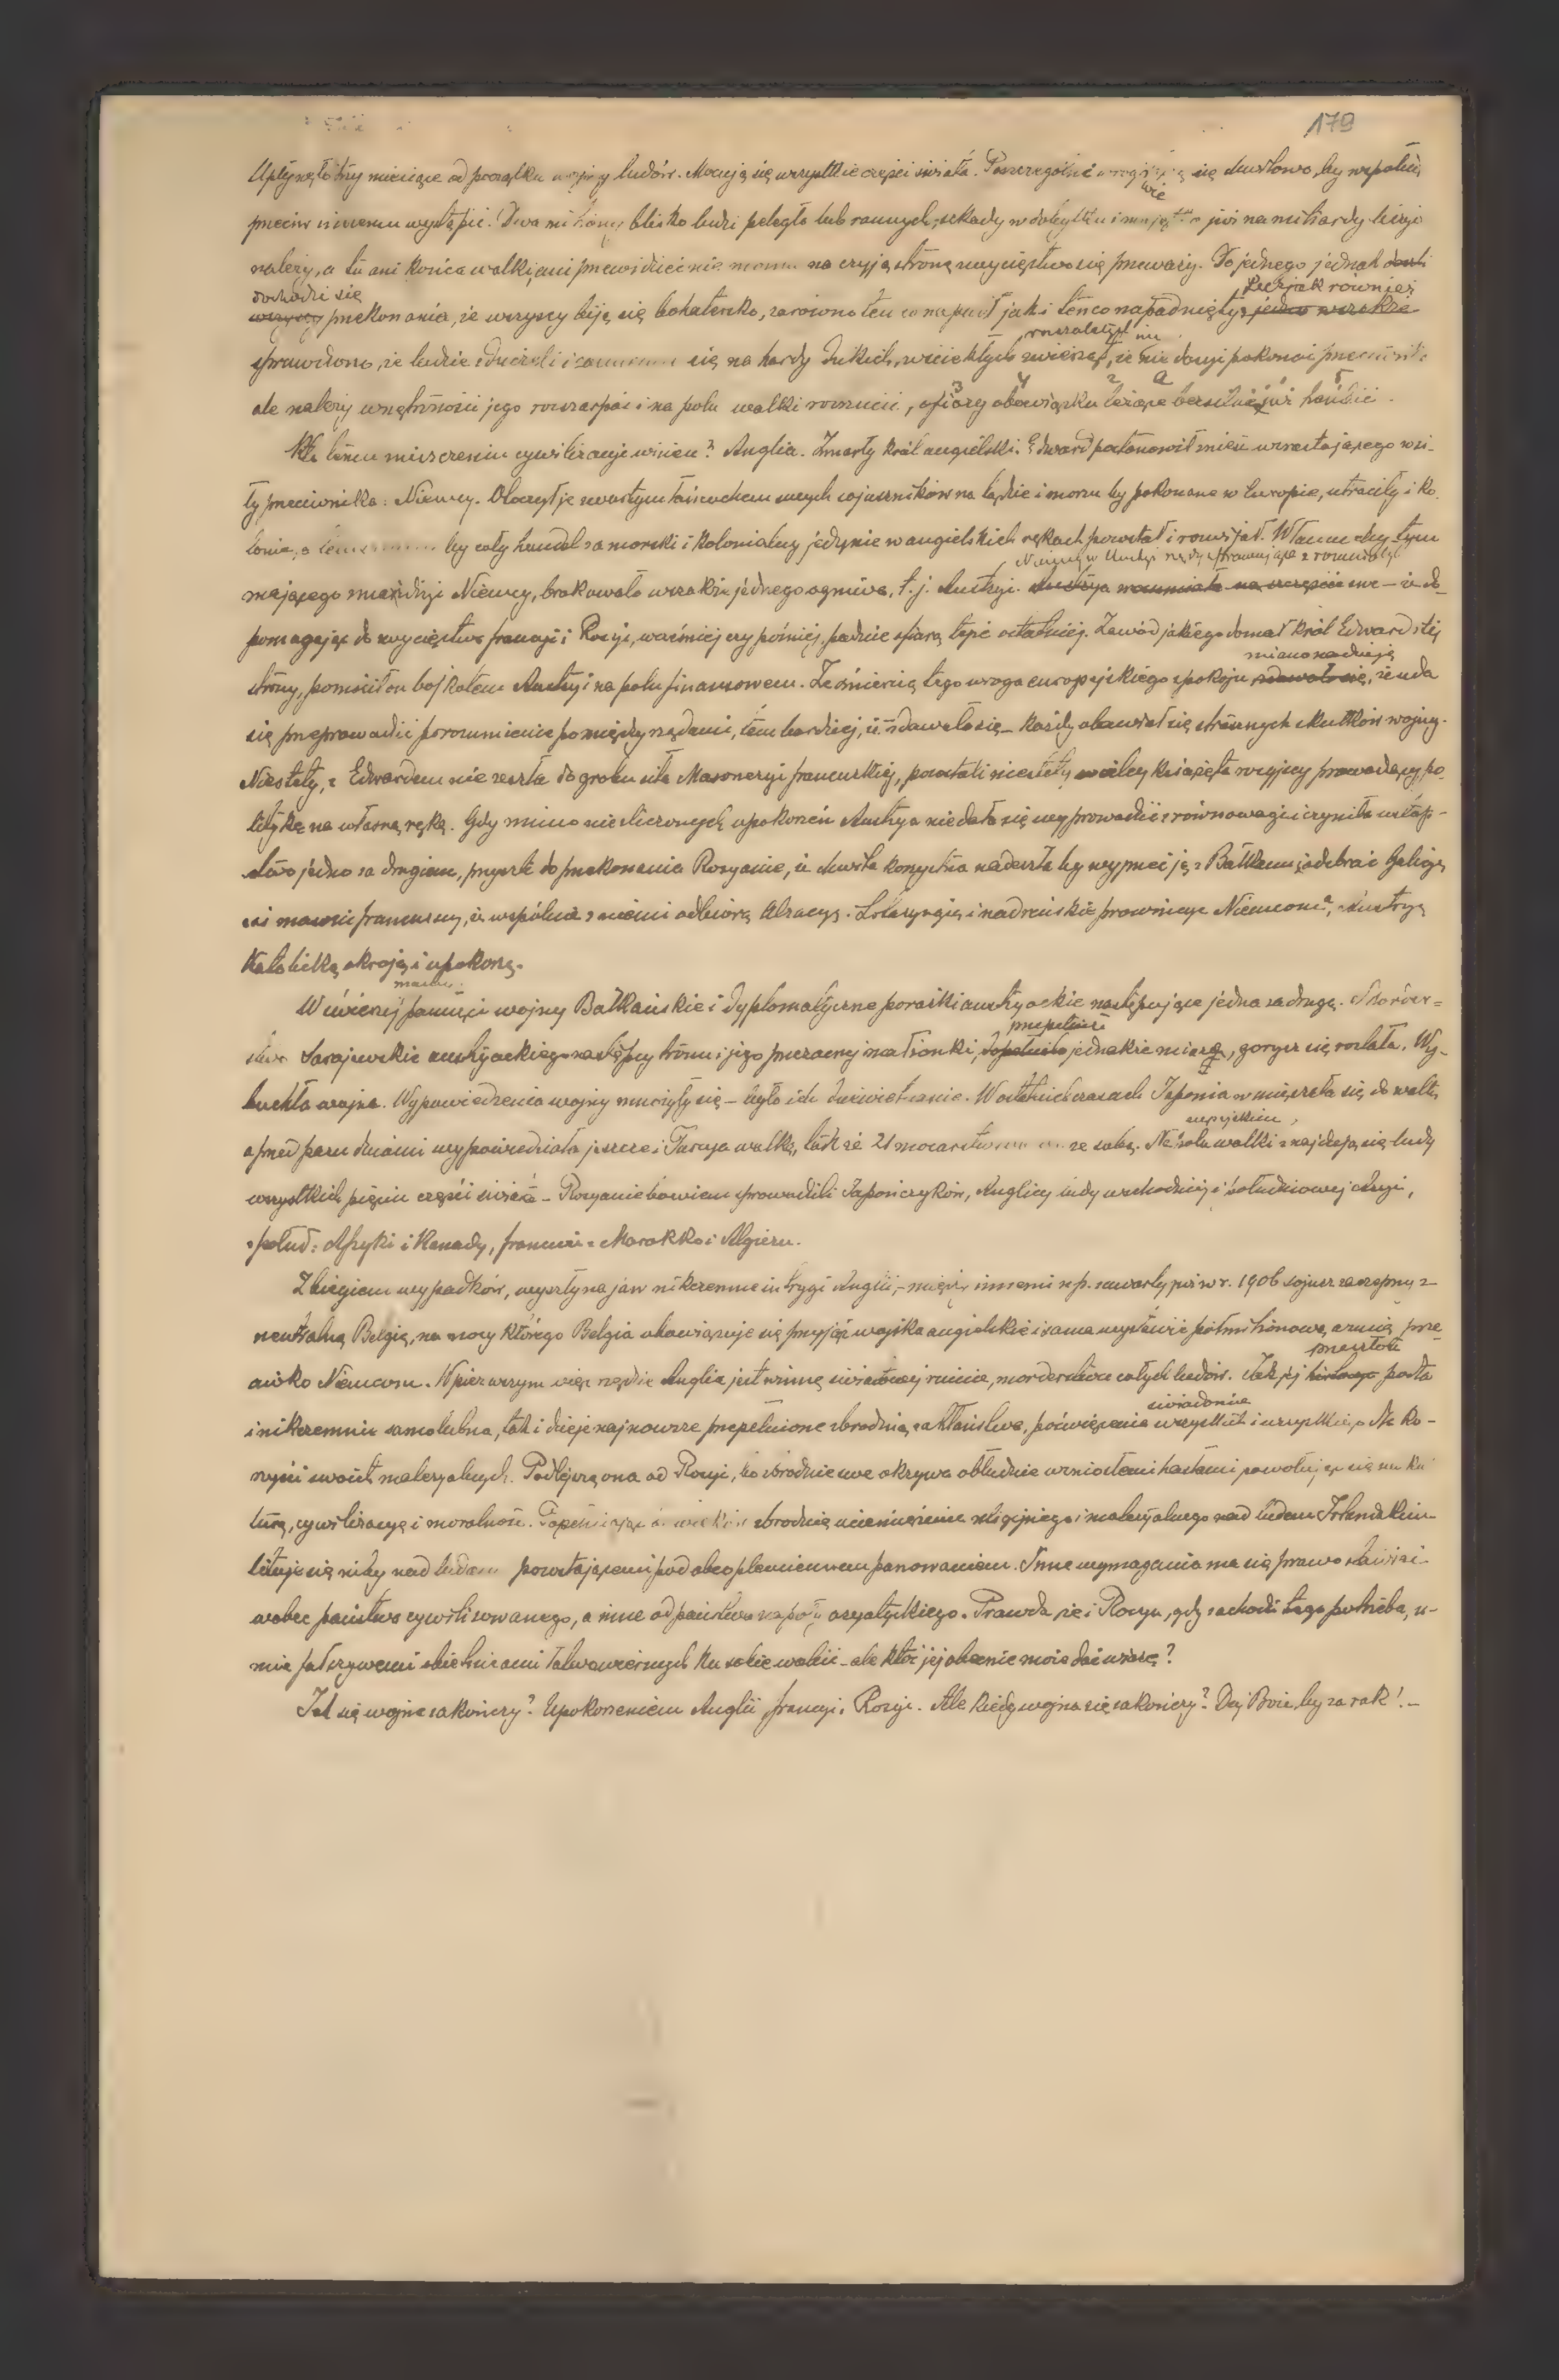 179
Upłynęło trzy miesiące od początku wojny ludów. Mocują się wszystkie części świata. Poszczególni wrogowie się duchowo, by wspólnie
przeciw innemu wystąpić. Dwa miliony blisko ludzi poległo lub rannych, szkody w dobytku i majątku już na miliardy liczyć
należy, a tu ani końca walki, ani przewidzieć nie można na czyją stronę zwycięstwo się przeważy. Do jednego jednak
Lecz jak również
dochodzi się
wszyscy przekonania, że wszyscy biją się bohatersko, zarówno ten co napadł jak i ten co napadnięty, jedno wszakże
rozszalałych
sprawdzono, że ludzie zdziczeli i się na hordy dzikich, wściekłych zwierząt, że nie dosyć pokonać przeciwnika
ale należy wnętrzności jego rozszarpać i na polu walki rozrzucić, ofiary obowiązku leżące bezsilnie już hańbić.
Kto temu zniszczeniu cywilizacyi winien? Anglia. Zmarły król angielski Edward postanowił mieć wzrastającego w si-
ły przeciwnika: Niemcy. Otoczył je zwartym łańcuchem swych sojuszników na lądzie i morzu by pokonane w Europie, utraciły i ko-
lonie, a by cały handel zamorski i kolonialny jedynie w angielskich rękach powstał i rozwijał.
Niemcy w Austryi
mającego Niemcy, brakowało wszakże jednego ogniwa, t.j. Austryi. Austrya zrozumiała na szczęście swe – że do-
pomagając do zwycięstwa francyi i Rosyi, wcześniej czy później, padnie ofiarą tejże ostatniej. Zawód jakiego doznał król Edward z tej
miano nadzieję
strony, pomścił on bojkotem Austryi na polu finansowem. Ze śmiercią tego wroga europejskiego spokoju zdawało się, że uda
się przeprowadzić porozumienie pomiędzy rządami, tem bardziej, iż zdawało się – każdy obawiał się strasznych skutków wojny.
Niestety, z Edwardem nie zeszła do grobu siła Masoneryi francuskiej, powstali niestety wielcy książęta rosyjscy prowadzący po-
litykę na własną rękę. Gdy mimo niezliczonych upokorzeń Austrya nie dała się wyprowadzić z równowagi i czyniła ustęp-
stwo jedno za drugiem, przyszli do przekonania Rosyanie, iż chwila korzystna nadeszła by wyprzeć ją z Bałkanu i odebrać Galicyę
zaś masoni francuscy, iż wspólnie z niemi odbiorą Alzacyę. Lotaryngię i nadreńskie prowincye Niemcom, Austryę
Katolicką okroją i upokorzą.
mamy
W świeżej pamięci wojny Bałkańskie i dyplomatyczne porażki austryackie następujące jedna za drugą. Morder-
przepełniło
stwo Sarajewskie austryackiego następcy tronu i jego przezacnej małżonki, dopełniło jednakże miarę, gorycz się rozlała. Wy-
buchła wojna. Wypowiedzenia wojny mnożyły się – było ich dziewiętnaście. W ostatnich czasach Japonia wmieszała się do walki,
a przed paru dniami wypowiedziała jeszcze i Turcya walkę, tak że 21 mocarstw ze sobą. Na polu walki znajdują się ludy
wszystkich pięciu części świata – Rosyanie bowiem sprowadzili Japończyków, Anglicy ludy wschodniej i południowej Azyi,
z połud: Afryki i Kanady, francuzi z Marokko i Algieru.
Z biegiem wypadków, wyszły na jaw nikczemne intrygi Anglii, – między innemi n.p. zawarty już w r. 1906 sojusz zaczepny z
neutralną Belgią, na mocy którego Belgia obowiązuje się przyjąć wojska angielskie i sama wystawić półmilionową armię prze-
przeszłość
ciwko Niemcom. W pierwszym więc rzędzie Anglia jest winną światowej ruinie, morderstwu całych ludów. Jak jej historya podła
świadomie
i nikczemnie samolubna, tak i dzieje najnowsze przepełnione zbrodnią, zakłamstwa, poświęcenia wszystkich i wszystkiego dla ko-
rzyści swoich materyalnych. Podlejszą ona od Rosyi, bo zbrodnie swe okrywa obłudnie wzniosłemi hasłami powołując się na kul-
turę, cywilizacyę i moralność. Popełniając od wieków zbrodnię uciemiężenia religijnego i materyalnego nad ludem Irlandzkim
lituje się niby nad ludami powstającemi pod obcoplemiennem panowaniem. Inne wymagania ma się prawo stawiać
wobec państwa cywilizowanego, a inne od państwa na poły azyatyckiego. Prawda że i Rosya, gdy zachodzi tego potrzeba, u-
mie fałszywemi obietnicami łatwowiernych ku sobie wabić – ale któż jej obecnie może dać wiarę?
Jak się wojna zakończy? Upokorzeniem Anglii, francyi i Rosyi. Ale kiedy wojna się zakończy? Daj Boże, by za rok! –